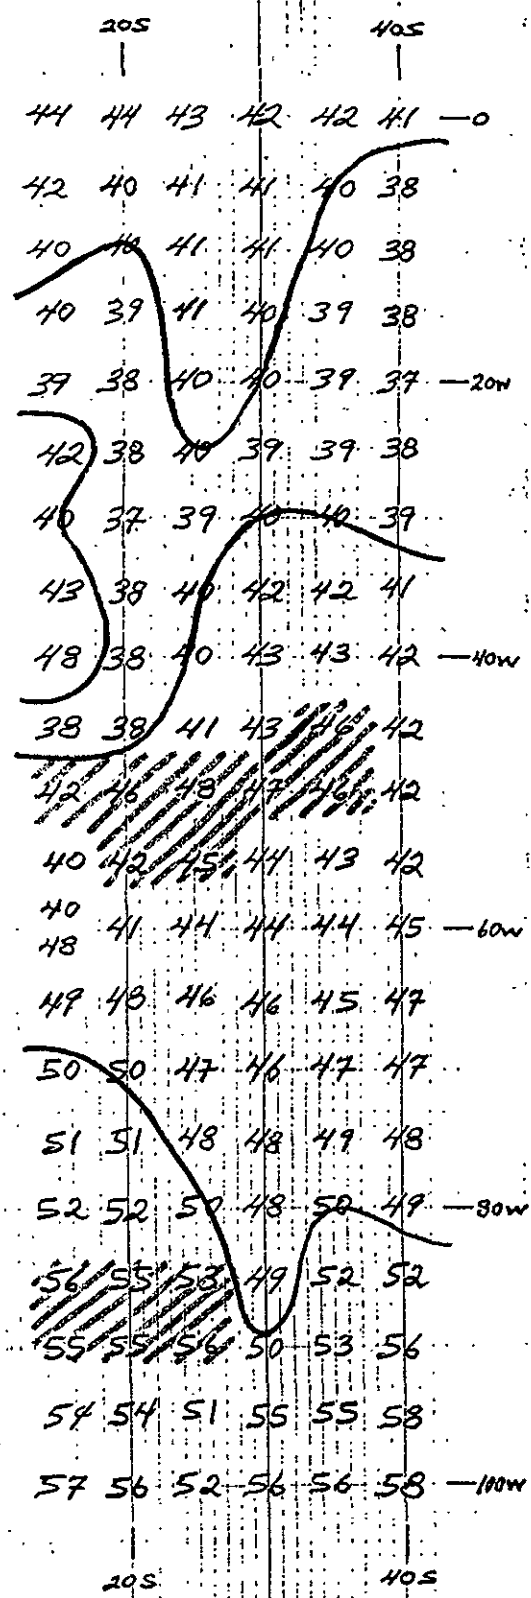 20S 40S
44 44 43 42 42 41 —0
42 40 41 41 40 38
40 40 41 41 40 38
40 39 41 40 39 38
39 38 40 40 39 37 —20W
42 38 40 39 39 38
40 37 39 40 40 39
43 38 40 42 42 41
48 38 40 43 43 42 —40W
38 38 41 43 46 42
42 46 48 47 46 42
40 42 45 44 43 42
40
48 41 44 44 44 45 —60W
49 48 46 46 45 47
50 50 47 46 47 47
51 51 48 48 49 48
52 52 50 48 50 49 —80W
56 55 53 49 52 52
55 55 56 50 53 56
54 54 51 55 55 58
57 56 52 56 56 58 —100W
20S 40S